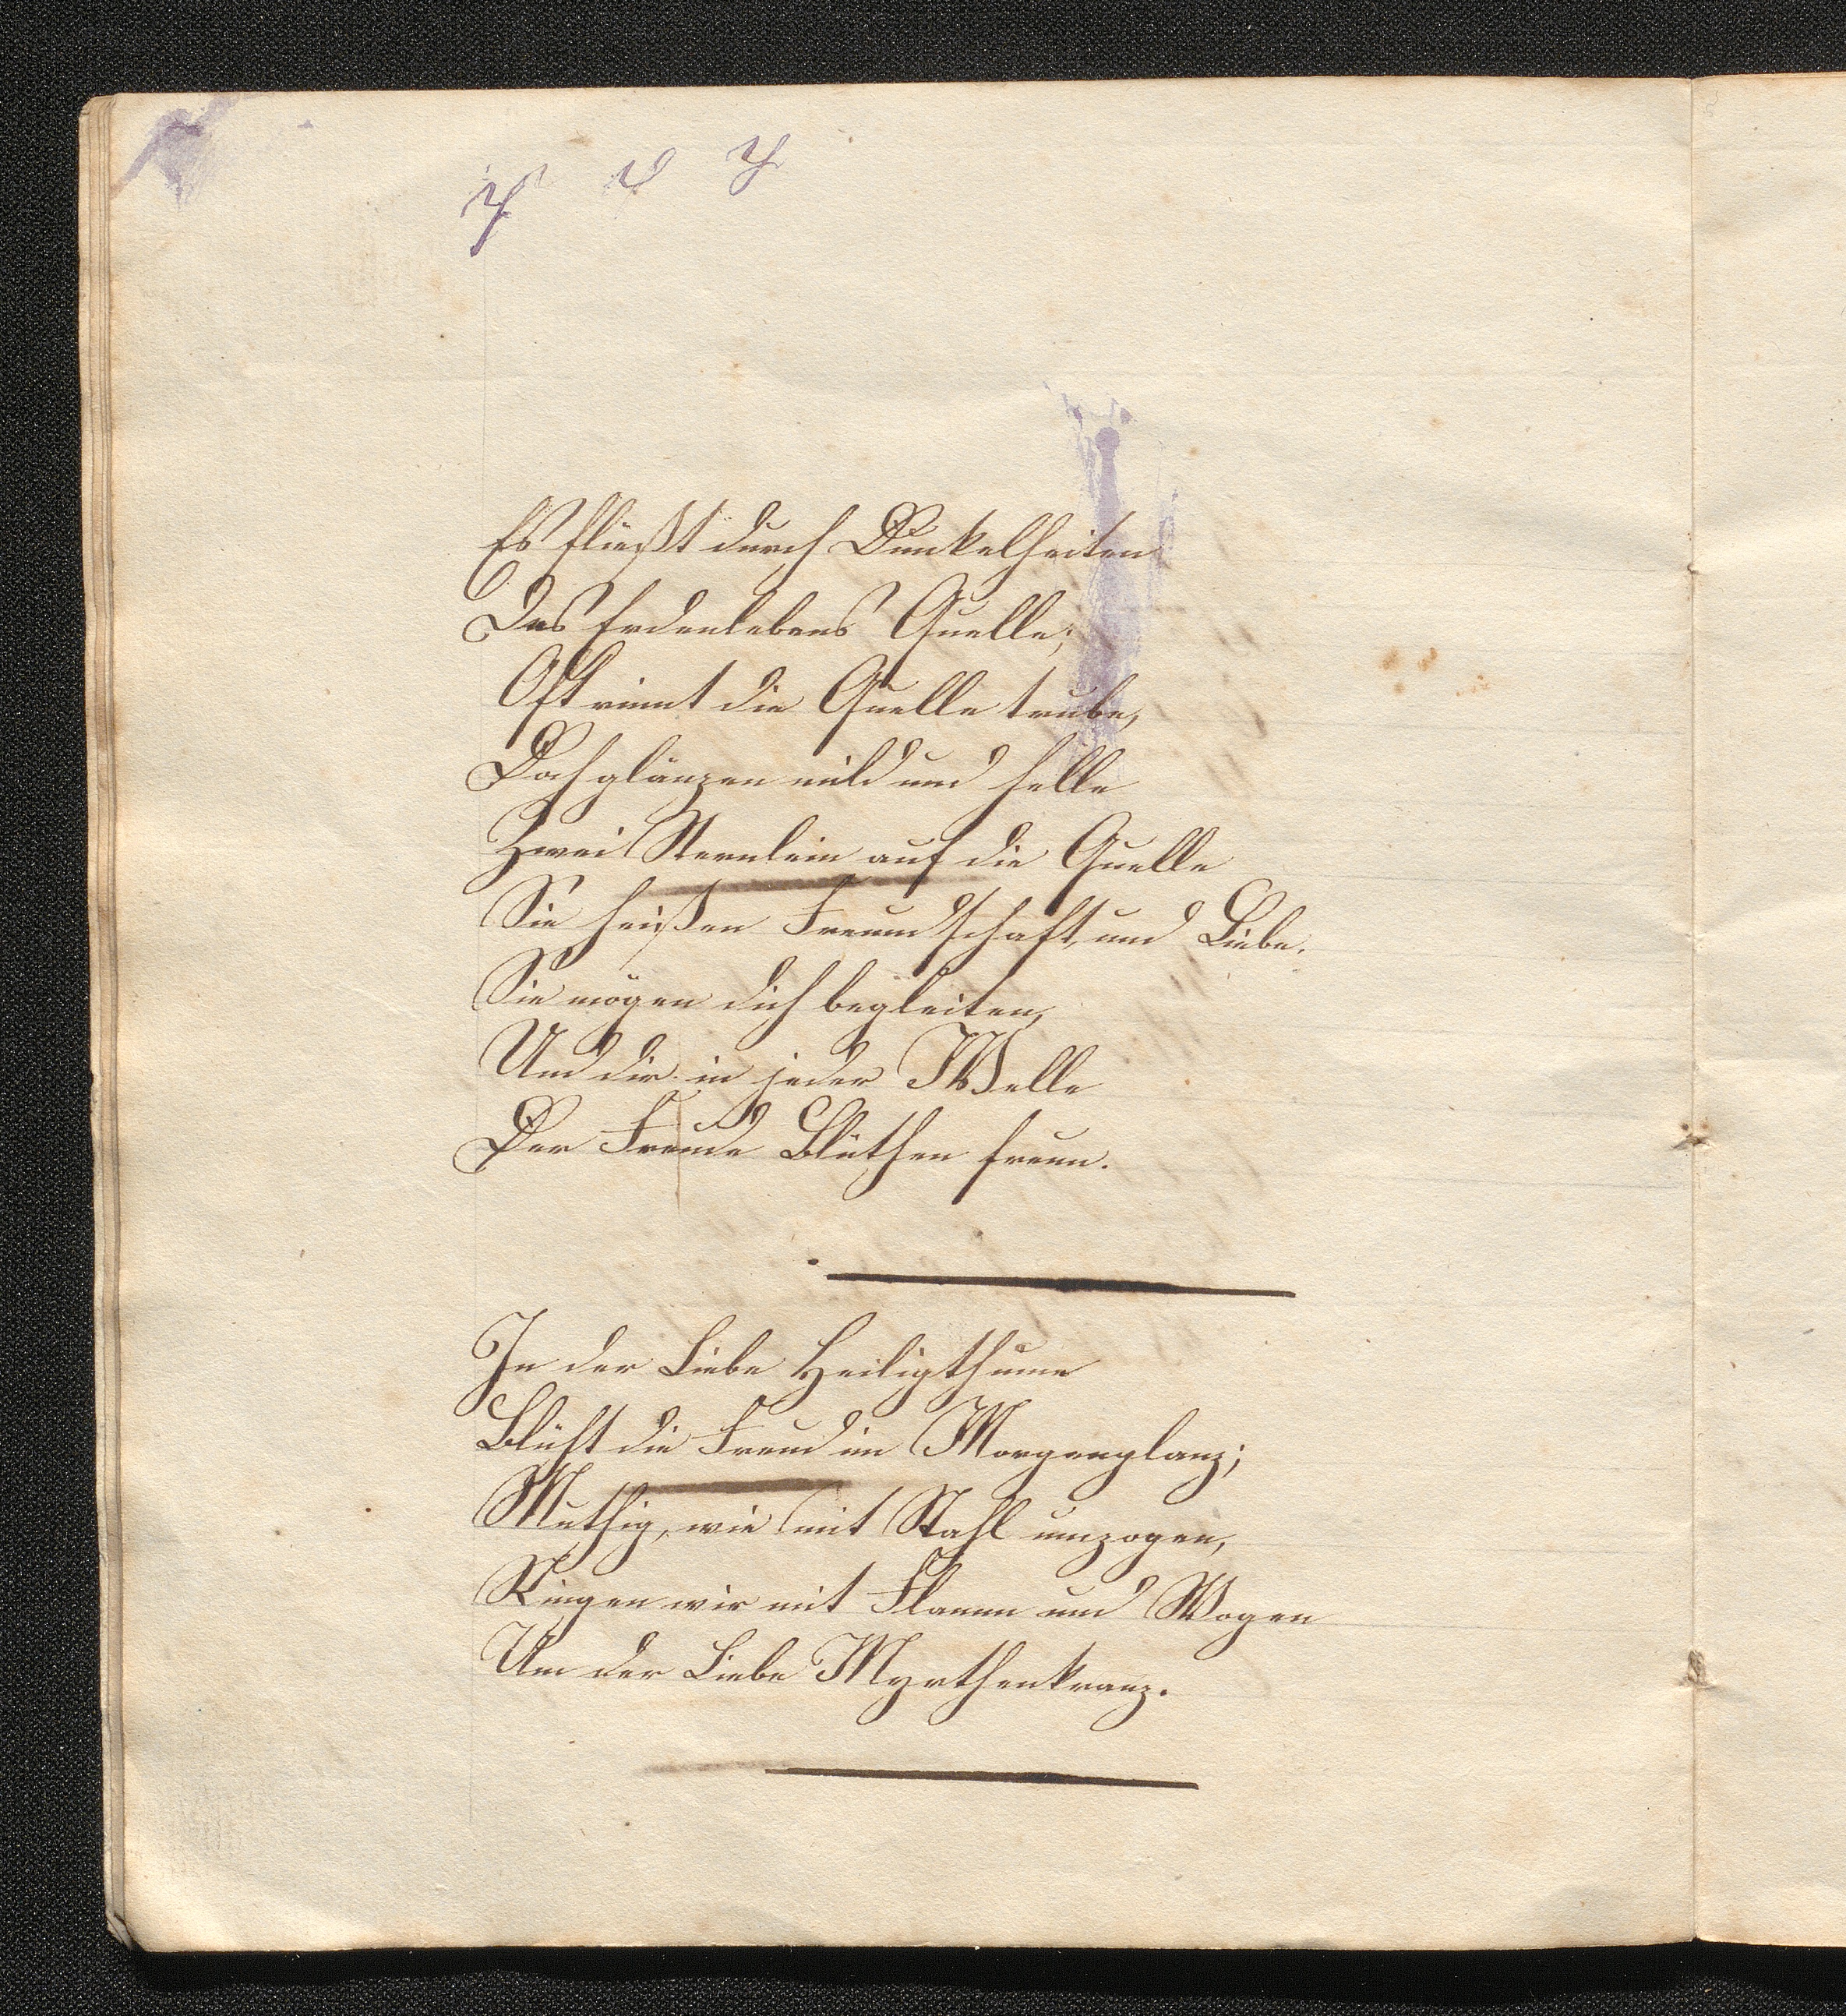 Es fließt durch Dunkelheiten
Des Erdenlebens Quelle;
Oft rinnt die Quelle trübe,
Doch glänzen mild und helle
Zwei Sternlein auf die Quelle
Sie heißen Freundschaft, und Liebe.
Sie mögen dich begleiten,
Und dir in jeder Welle
Der Freude Blüthen streun.
In der Liebe Heiligthume
Blüht die Freud im Morgenglanz;
Muthig, wie mit Stahl umzogen,
Ringen wir mit Flamm und Wogen
Um der Liebe Myrthenkranz.